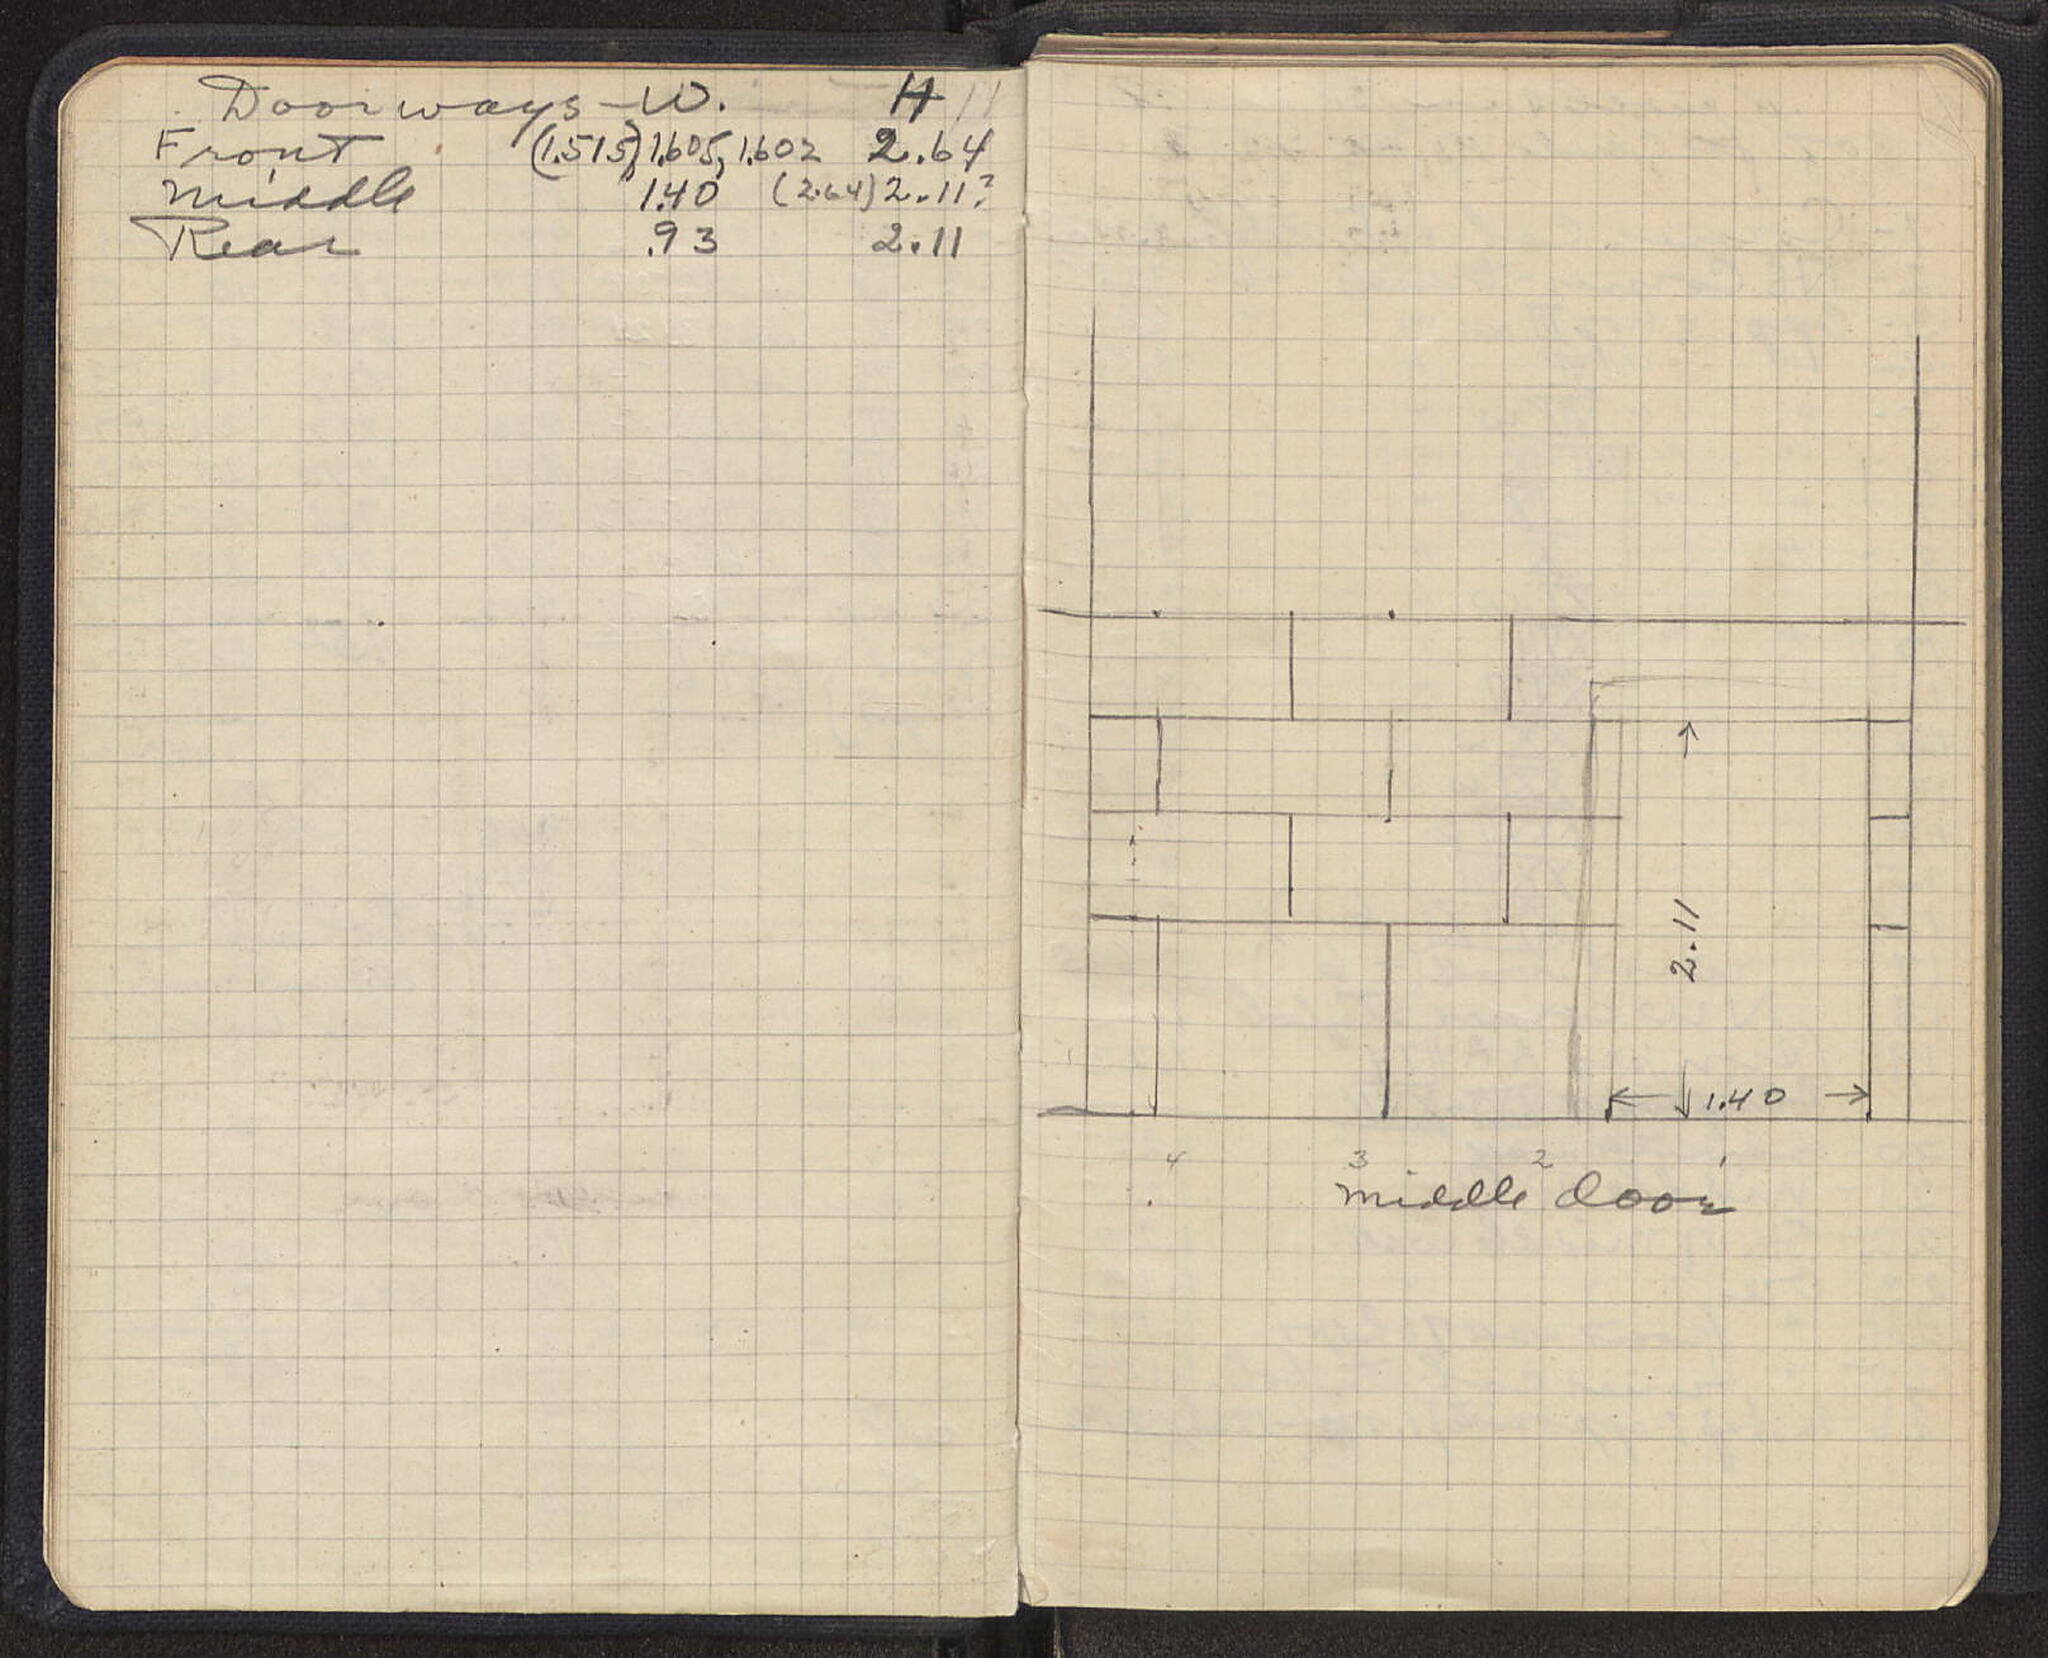 Doorways - W. H
Front (1.515), 1.605, 1.602 2.64
Middle 1.40 (2.64) 2.11?
Rear .93 2.11
2.11
1.40
4 3 2 1
Middle door